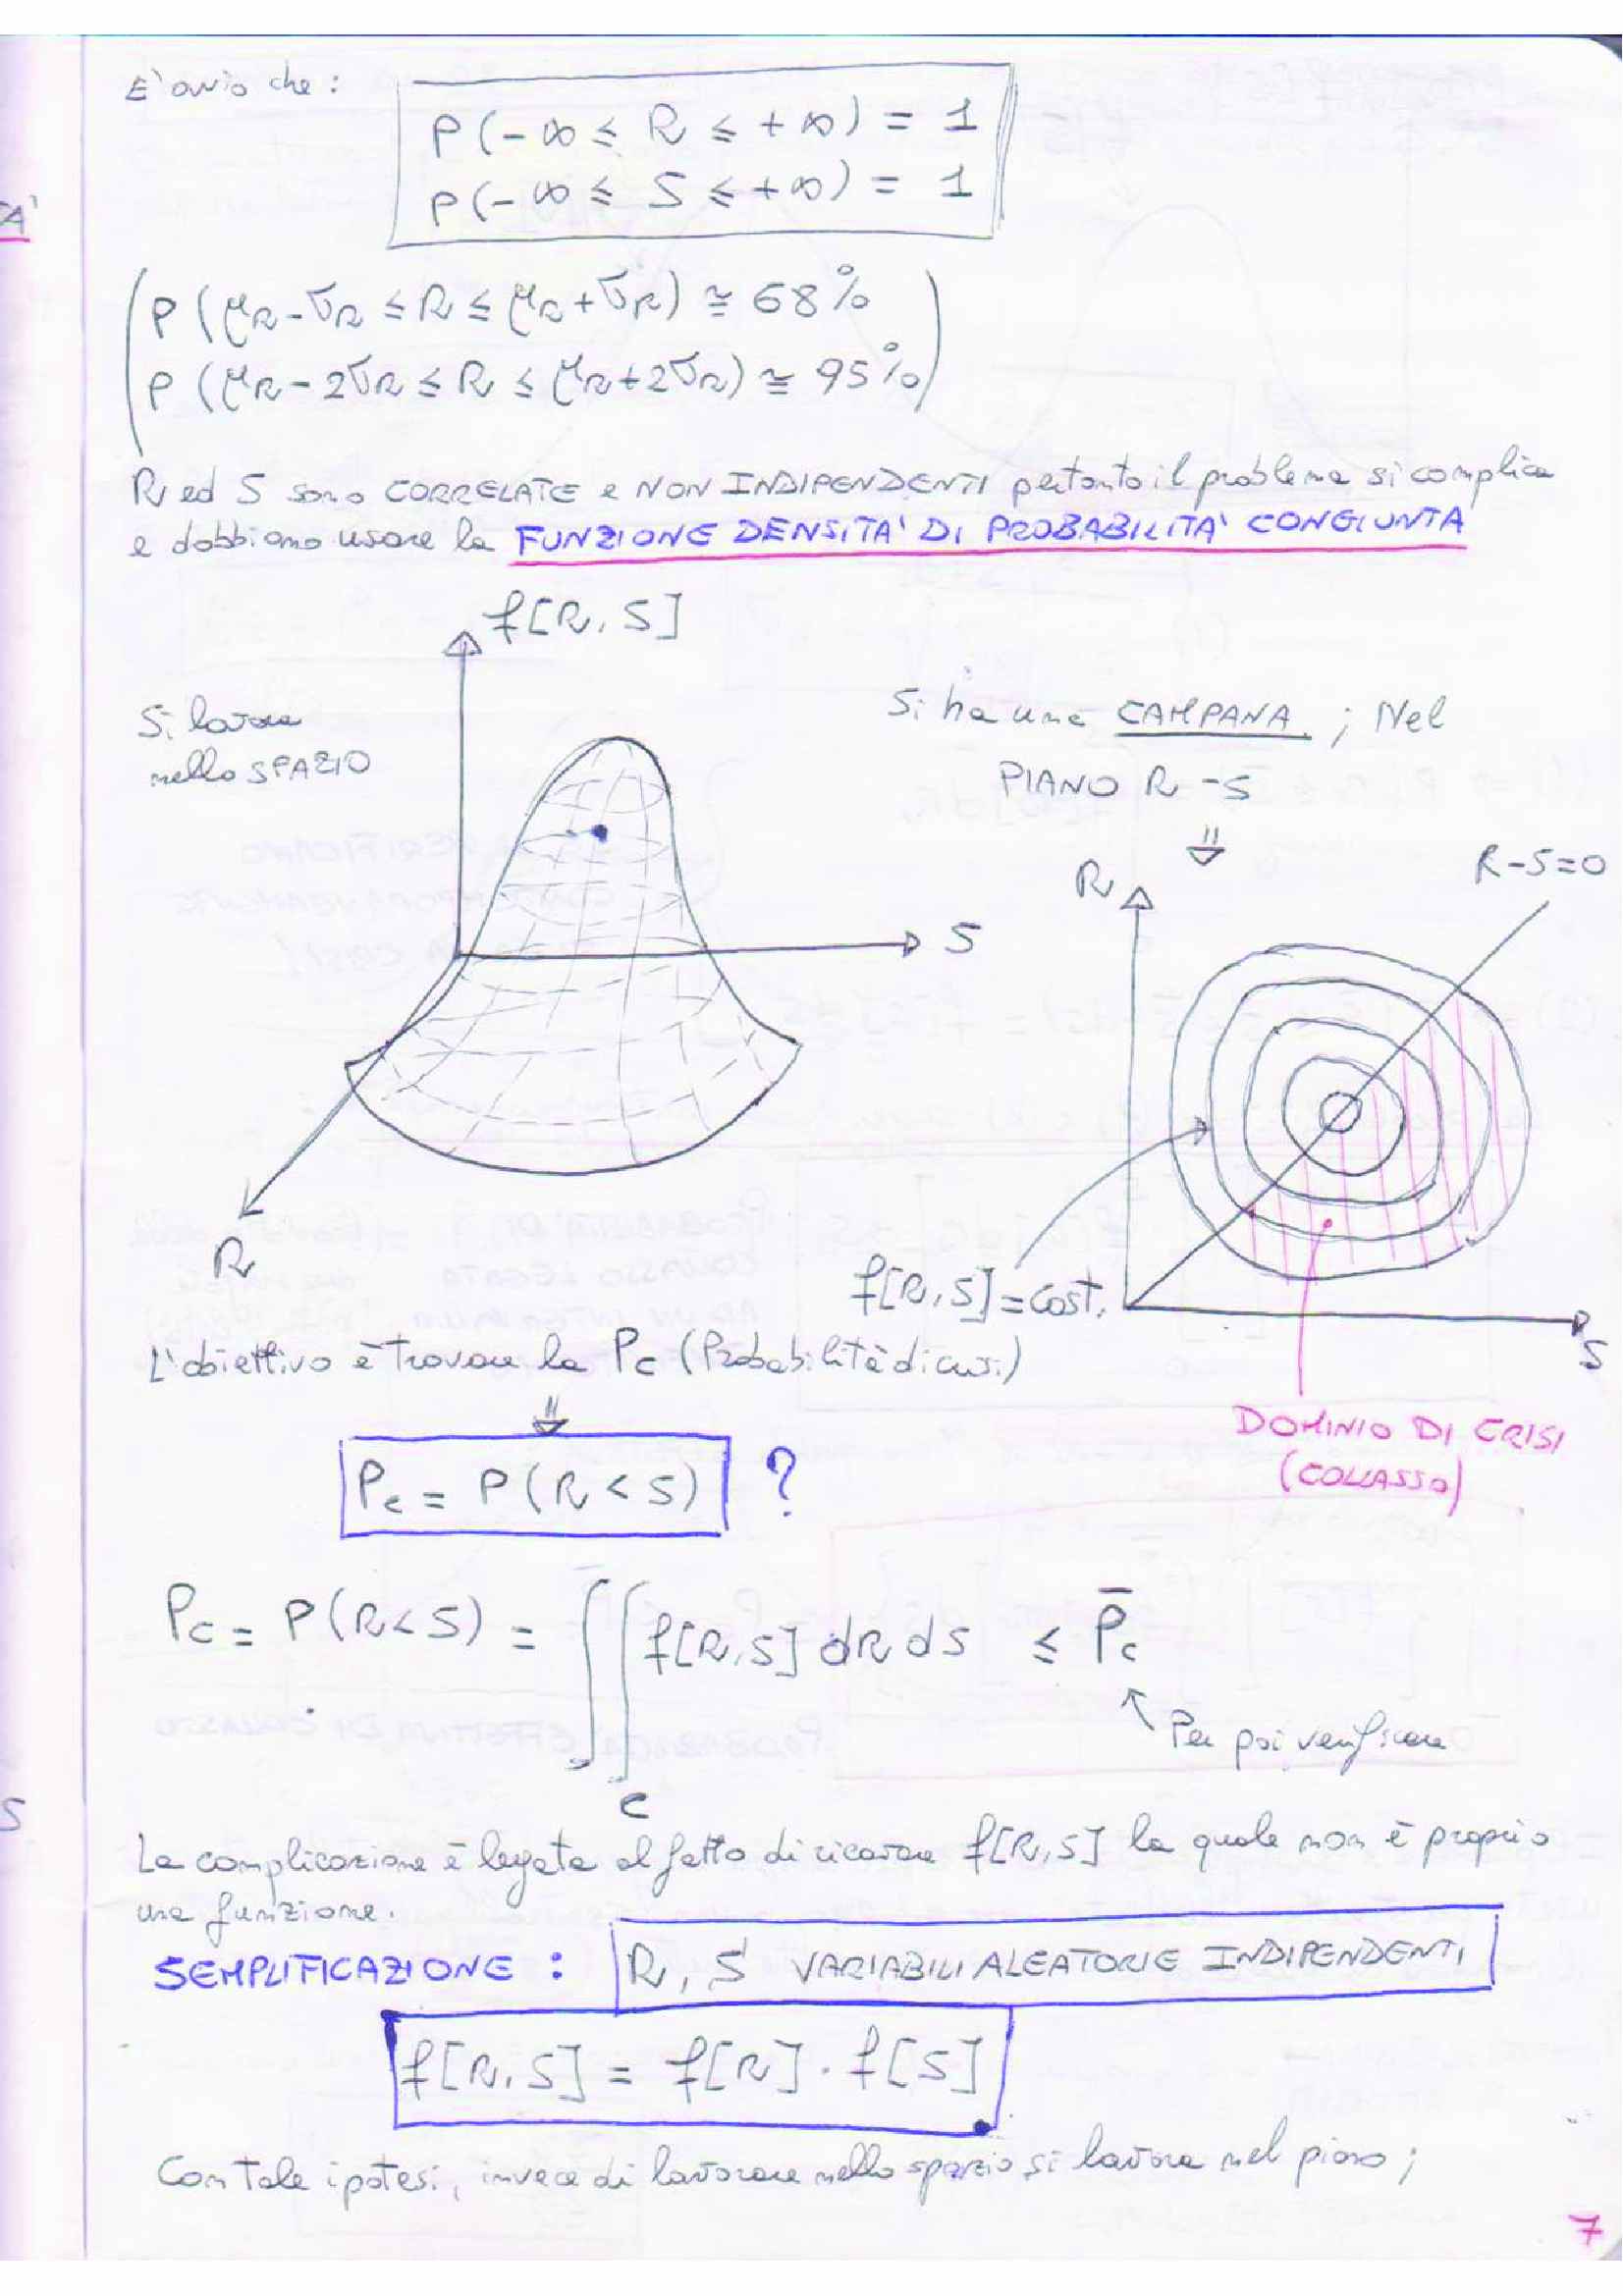 E' ovvio che :
P(-∞ ≤ R ≤ +∞) = 1
P(-∞ ≤ S ≤ +∞) = 1
A'
P(μR-σR ≤ R ≤ μR+σR) ≅ 68%
P(μR-2σR ≤ R ≤ μR+2σR) ≅ 95%
R ed S sono CORRELATE e NON INDIPENDENTI pertanto il problema si complica
e dobbiamo usare la FUNZIONE DENSITA' DI PROBABILITA' CONGIUNTA
f[R,S]
Si lavora
nello SPAZIO
S
R
Si ha una CAMPANA ; Nel
PIANO R-S
⇓
R
R-S=0
f[R,S]=cost.
S
DOMINIO DI CRISI
(COLLASSO)
L'obiettivo è trovare la Pc (Probabilità di crisi)
⇓
Pc = P(R<S) ?
Pc = P(R<S) = ∬ f[R,S] dR dS ≤ P̄c
C
Per poi verificare
S
La complicazione è legata al fatto di ricavare f[R,S] la quale non è proprio
una funzione.
SEMPLIFICAZIONE : R, S VARIABILI ALEATORIE INDIPENDENTI
f[R,S] = f[R] · f[S]
Con tale ipotesi, invece di lavorare nello spazio si lavora nel piano ;
7